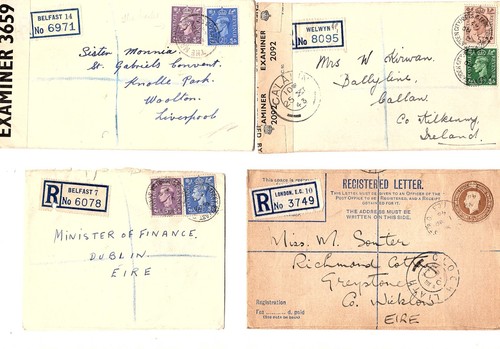 EXAMINER 3659
BELFAST 14
No 6971
Sister Monnia
St. Gabriels Convent.
Knolle Park.
Woolton.
Liverpool
EXAMINER
2092
EXAMINER
2092
WELWYN
No 8095
Mrs W Kirwan.
Ballyline,
Callan.
Co Kilkenny,
Ireland.
R
BELFAST 7
No 6078
MINISTER OF FINANCE,
DUBLIN.
EIRE
This space is
R
LONDON, E.C. 10
No 3749
REGISTERED LETTER.
THIS LETTER MUST BE GIVEN TO AN OFFICER OF THE
POST OFFICE TO BE REGISTERED, AND A RECEIPT
OBTAINED FOR IT.
THE ADDRESS MUST BE
WRITTEN ON THIS SIDE.
Miss. M. Souter
Richmond
Greystones
Co. Wicklow
EIRE
Registration
paid